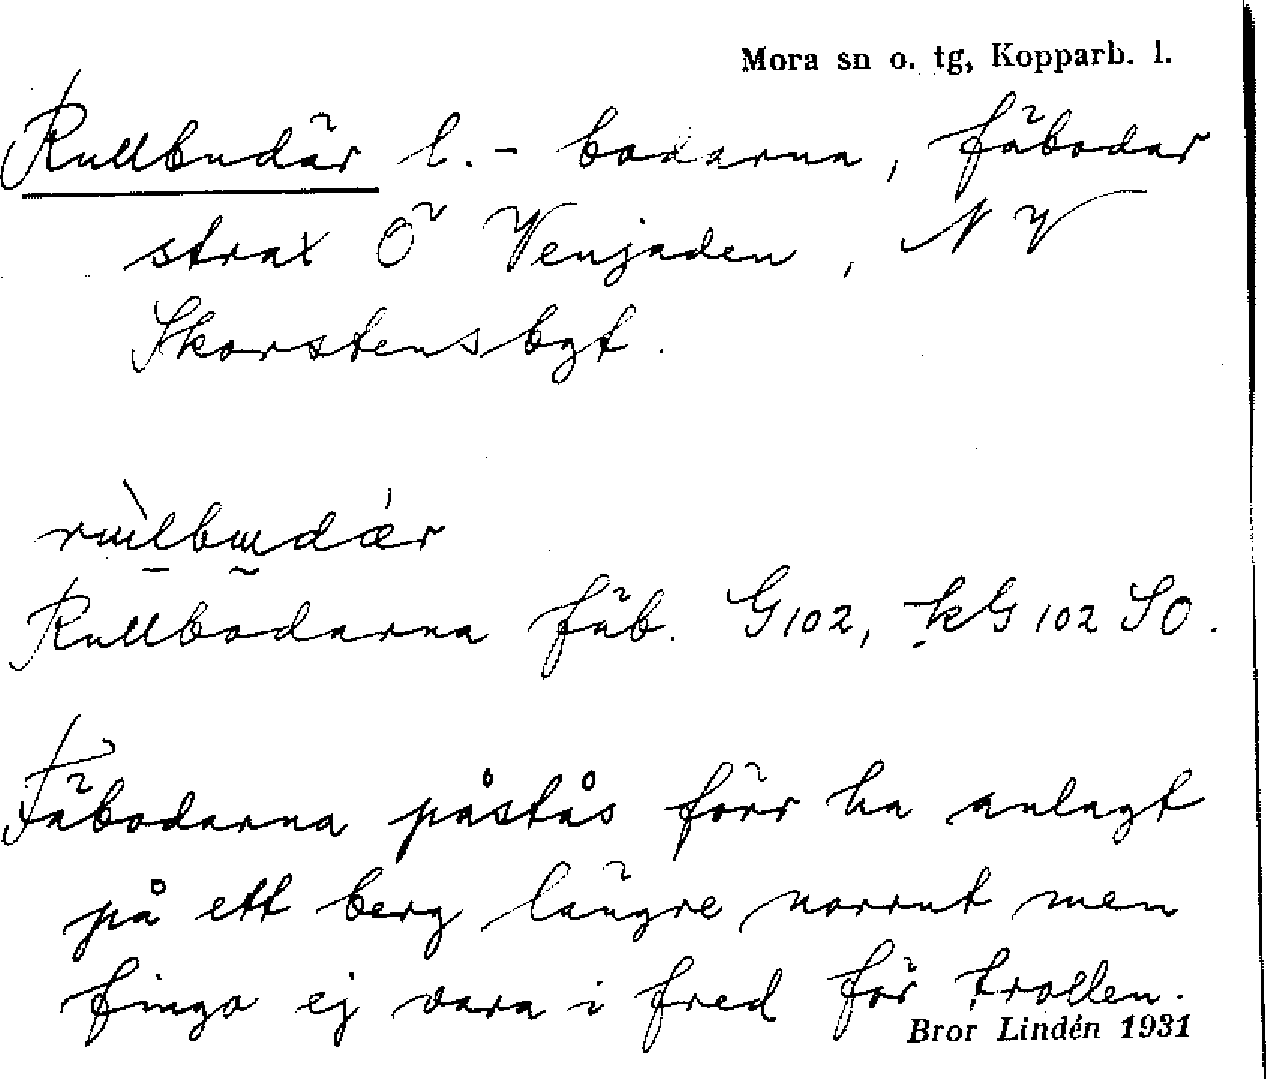 Mora sn o. tg, Kopparb. l.
Rullbudär l. - bodarna, fäbodar
strax Ö Venjaden, NV
Skorstensbgt.
Rullbodarna fäb. G 102, kG 102 SO.
Fäbodarna påstås förr ha anlagt
på ett berg längre norrut men
fingo ej vara i fred för trollen.
Bror Lindén 1931